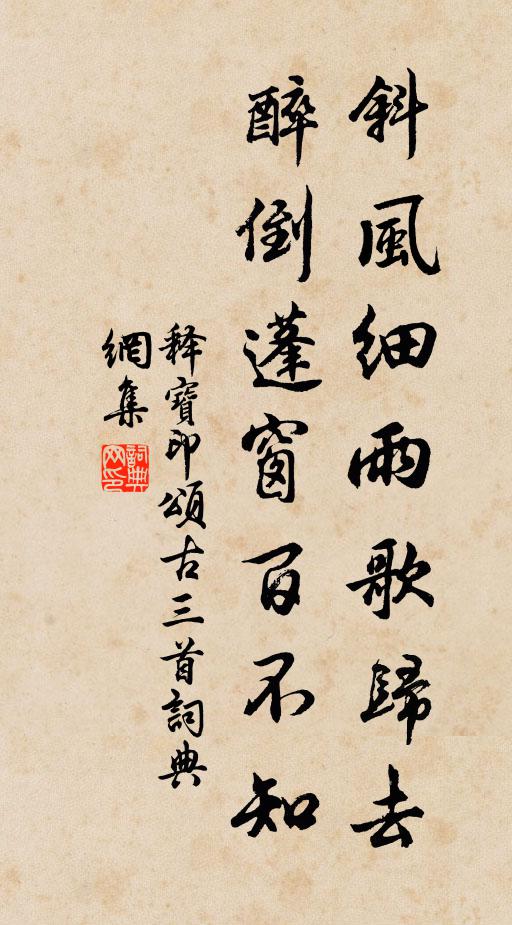 斜風細雨歌歸去
醉倒蓬窗百不知
释寶印頌古三首詞典
網集
詞典
网印